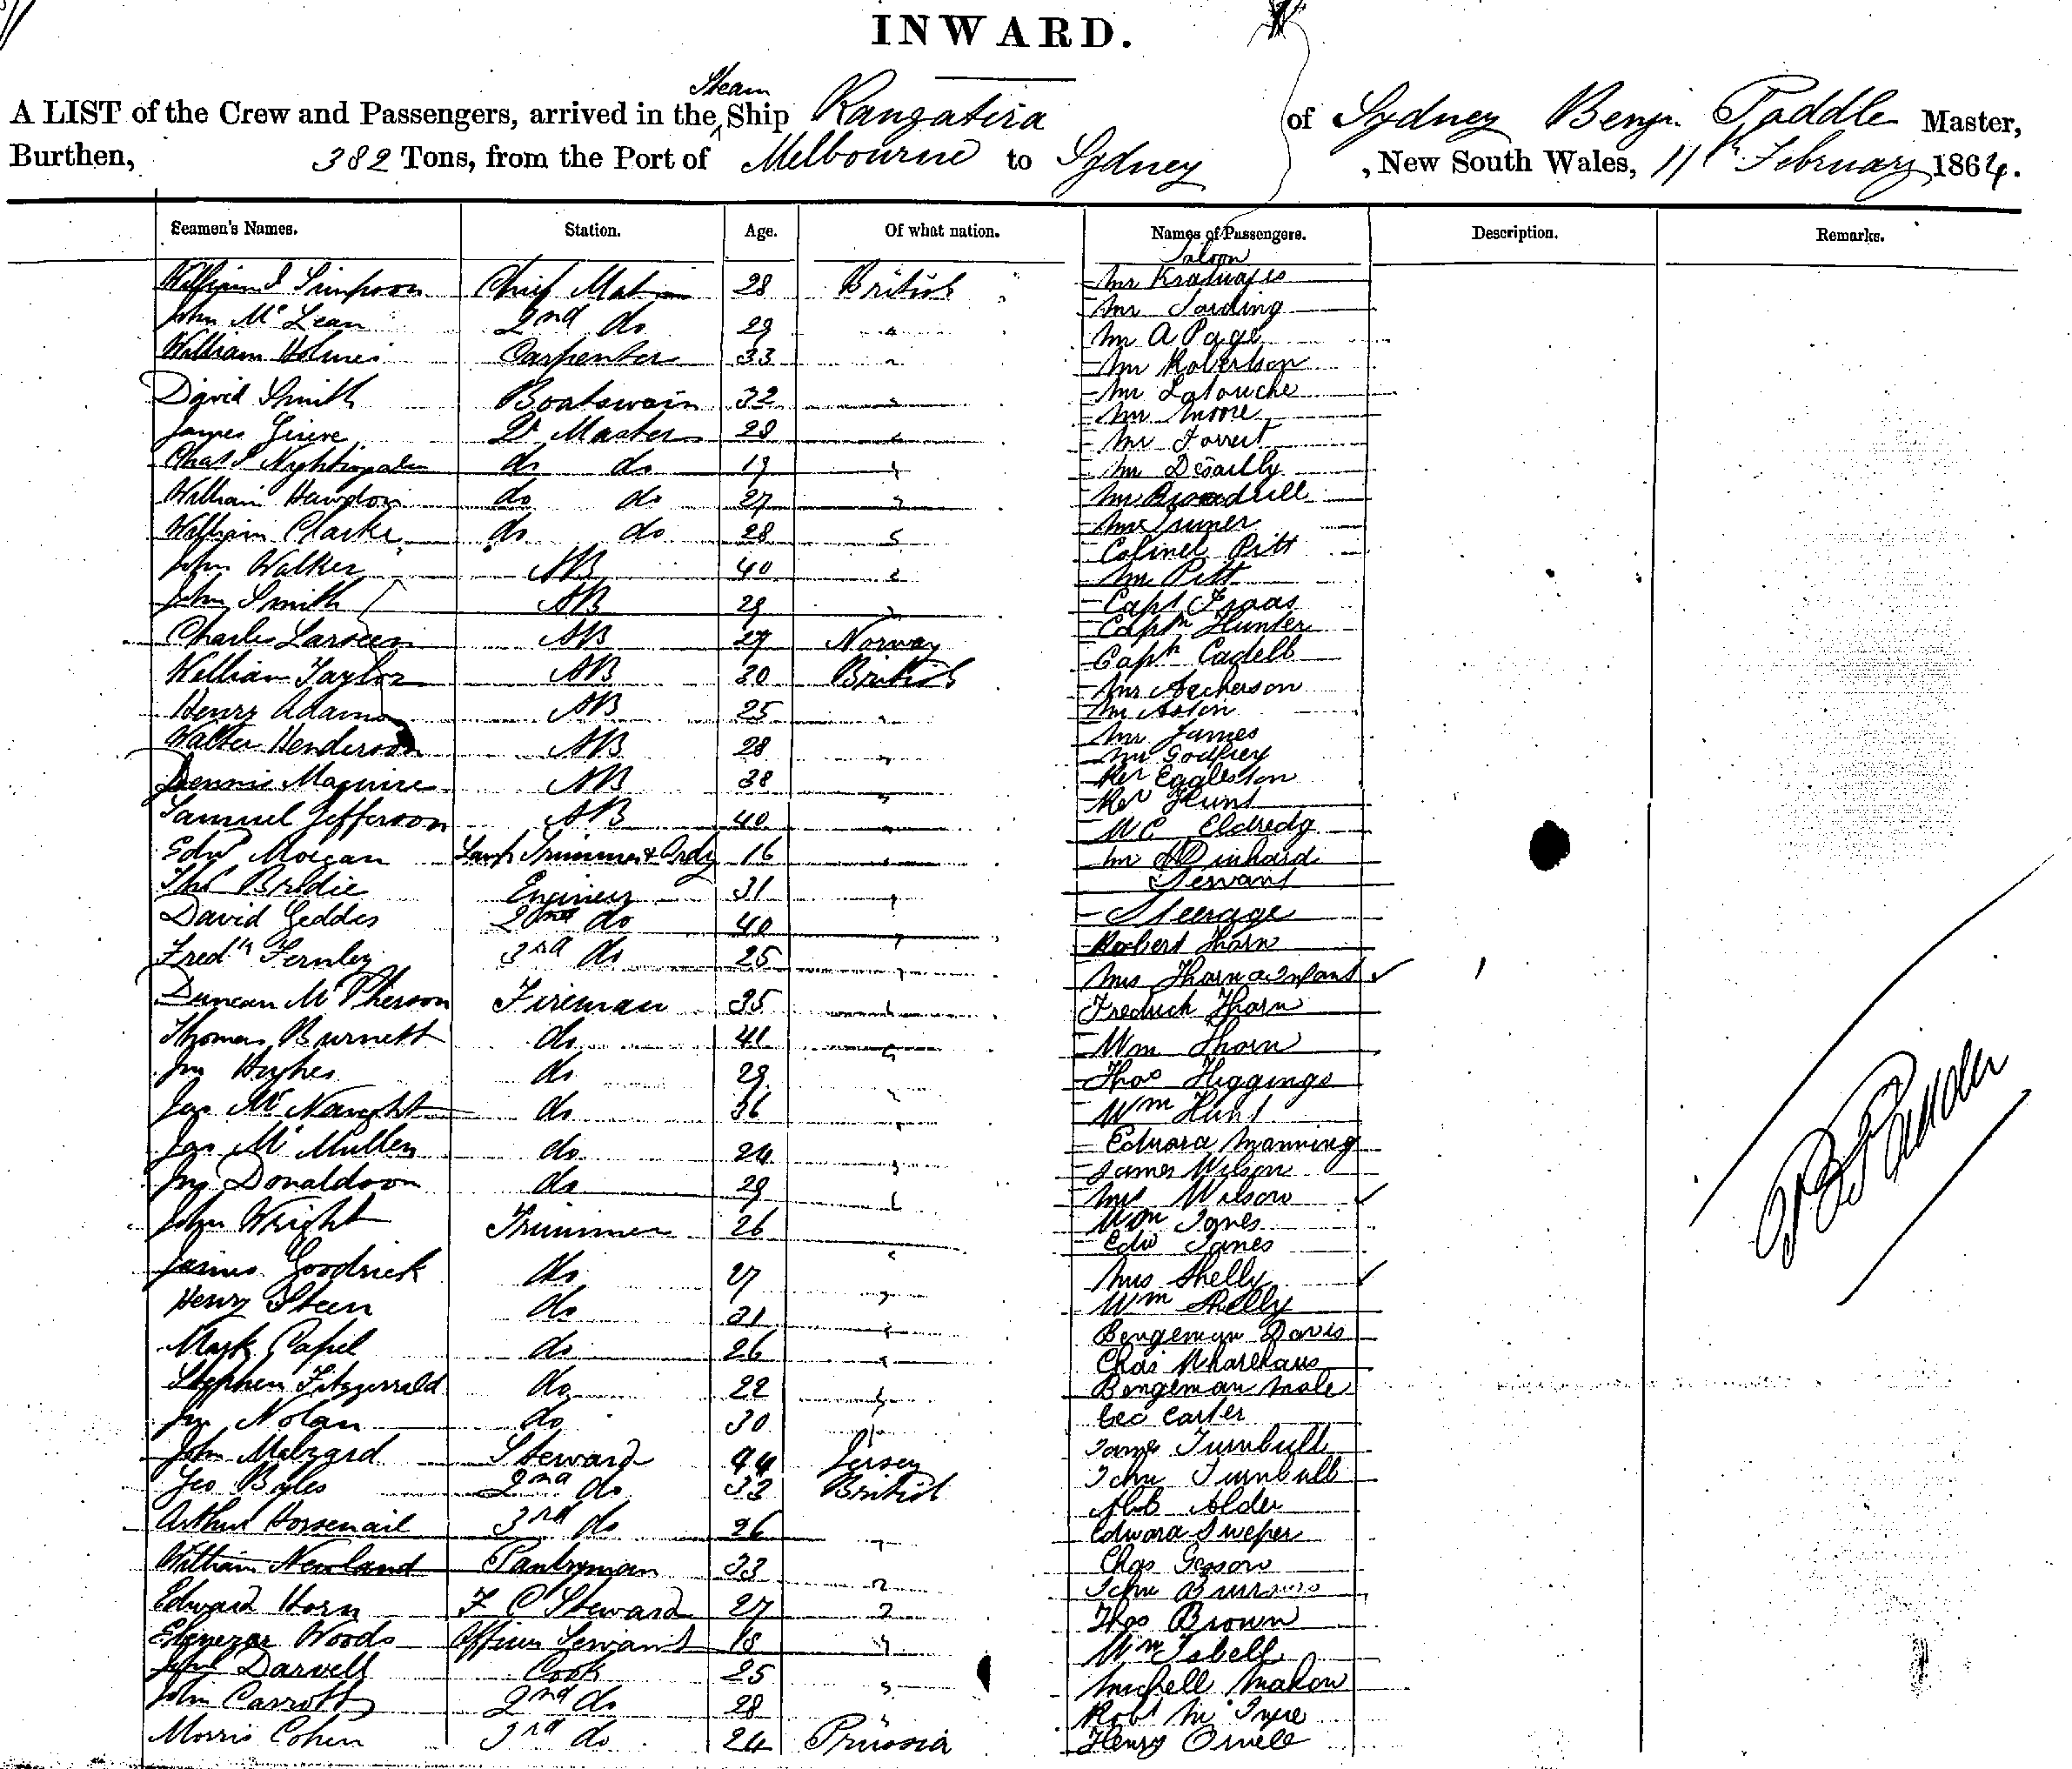 INWARD.
A LIST of the Crew and Passengers, arrived in the Steam Ship Rangatira of Sydney Benjn. Paddle Master,
Burthen, 382 Tons, from the Port of Melbourne to Sydney , New South Wales, 11th February 1864.
Seamen's Names. Station. Age. Of what nation. Names of Passengers. Description. Remarks.
Saloon
William Simpson Chief Mate 28 British Mr
John McLean 2nd do 29 " Mr
William Holmes Carpenter 33 " Mr A Page
Mr Robertson
David Smith Boatswain 32 " Mr Latouche
Mr Moore
James Grieve Qr Master 28 " Mr Forrest
Chas Nightingale do do 19 " Mr Desailly
William do do 27 " Mr
William Clarke do do 28 " Turner
Colonel Pitt
John Walker AB 40 " Mr Pitt
John Smith AB 29 " Capt Isaas
Charles Larseen AB 27 Norway Captn Hunter
William Taylor AB 30 British Captn Cadell
Mr Acherson
Henry Adams AB 25 " Mr Astin
Walter Henderson AB 28 " Mr James
Mr Godfrey
Dennis Maguire AB 38 " Rev Eggleston
Rev Hunt
Samuel Jefferson AB 40 " W C Eldredg
Edwd Morgan Lamp Trimmer & Ordy 16 " Mr
Thos Bridie Engineer 31 " Servant
David Geddes 2nd do 40 " Steerage
Fredk Fernley 3rd do 25 " Robert Thorn
Mrs Thorn & Infant
Duncan McPherson Fireman 35 " Fredrick Thorn
Thomas Burnett do 41 " Wm Thorn
Jno Hughes do 29 " Thos Higgings
Jas McNaught do 36 " Wm Hunt
Jas McMullen do 24 " Edward Manning
James Wilson
Jno Donaldson do 29 " Mrs Wilson
John Wright Trimmer 26 " Wm Jones
Edw Janes
James Goodrick do 27 " Mrs Shelly
Henry Steen do 21 " Wm Shelly
Mark Capel do 26 " Bengeman Davis
Chas
Stephen Fitzgerrald do 22 " Bengeman Male
Jno Nolan do 30 " Geo Carter
John Malzard Steward 44 Jersey James Turnbull
Geo Byles 2nd do 33 British John Turnbull
Alder
Arthur Horsenail 3rd do 26 " Edward Sweper
William Newland Pantryman 33 " Chas
John
Edward Horn F C Steward 27 " Thos Brown
Ebenezer Woods Officers Servant 18 " Wm Isbell
John Darvell Cook 25 " Michell Mahon
John Carrott 2nd do 28 " Robt
Morris Cohen 3rd do 24 Prussia Henry